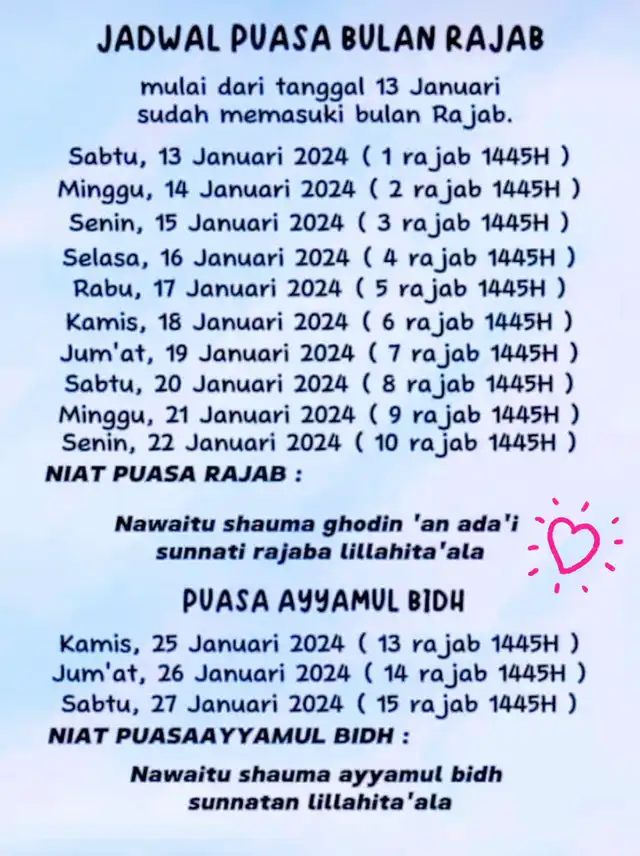 JADWAL PUASA BULAN RAJAB
mulai dari tanggal 13 Januari
sudah memasuki bulan Rajab.
Sabtu, 13 Januari 2024 ( 1 rajab 1445H )
Minggu, 14 Januari 2024 ( 2 rajab 1445H )
Senin, 15 Januari 2024 ( 3 rajab 1445H )
Selasa, 16 Januari 2024 ( 4 rajab 1445H )
Rabu, 17 Januari 2024 ( 5 rajab 1445H )
Kamis, 18 Januari 2024 ( 6 rajab 1445H )
Jum'at, 19 Januari 2024 ( 7 rajab 1445H )
Sabtu, 20 Januari 2024 ( 8 rajab 1445H )
Minggu, 21 Januari 2024 ( 9 rajab 1445H )
Senin, 22 Januari 2024 ( 10 rajab 1445H )
NIAT PUASA RAJAB :
Nawaitu shauma ghodin 'an ada'i
sunnati rajaba lillahita'ala
PUASA AYYAMUL BIDH
Kamis, 25 Januari 2024 ( 13 rajab 1445H )
Jum'at, 26 Januari 2024 ( 14 rajab 1445H )
Sabtu, 27 Januari 2024 ( 15 rajab 1445H )
NIAT PUASAAYYAMUL BIDH :
Nawaitu shauma ayyamul bidh
sunnatan lillahita'ala